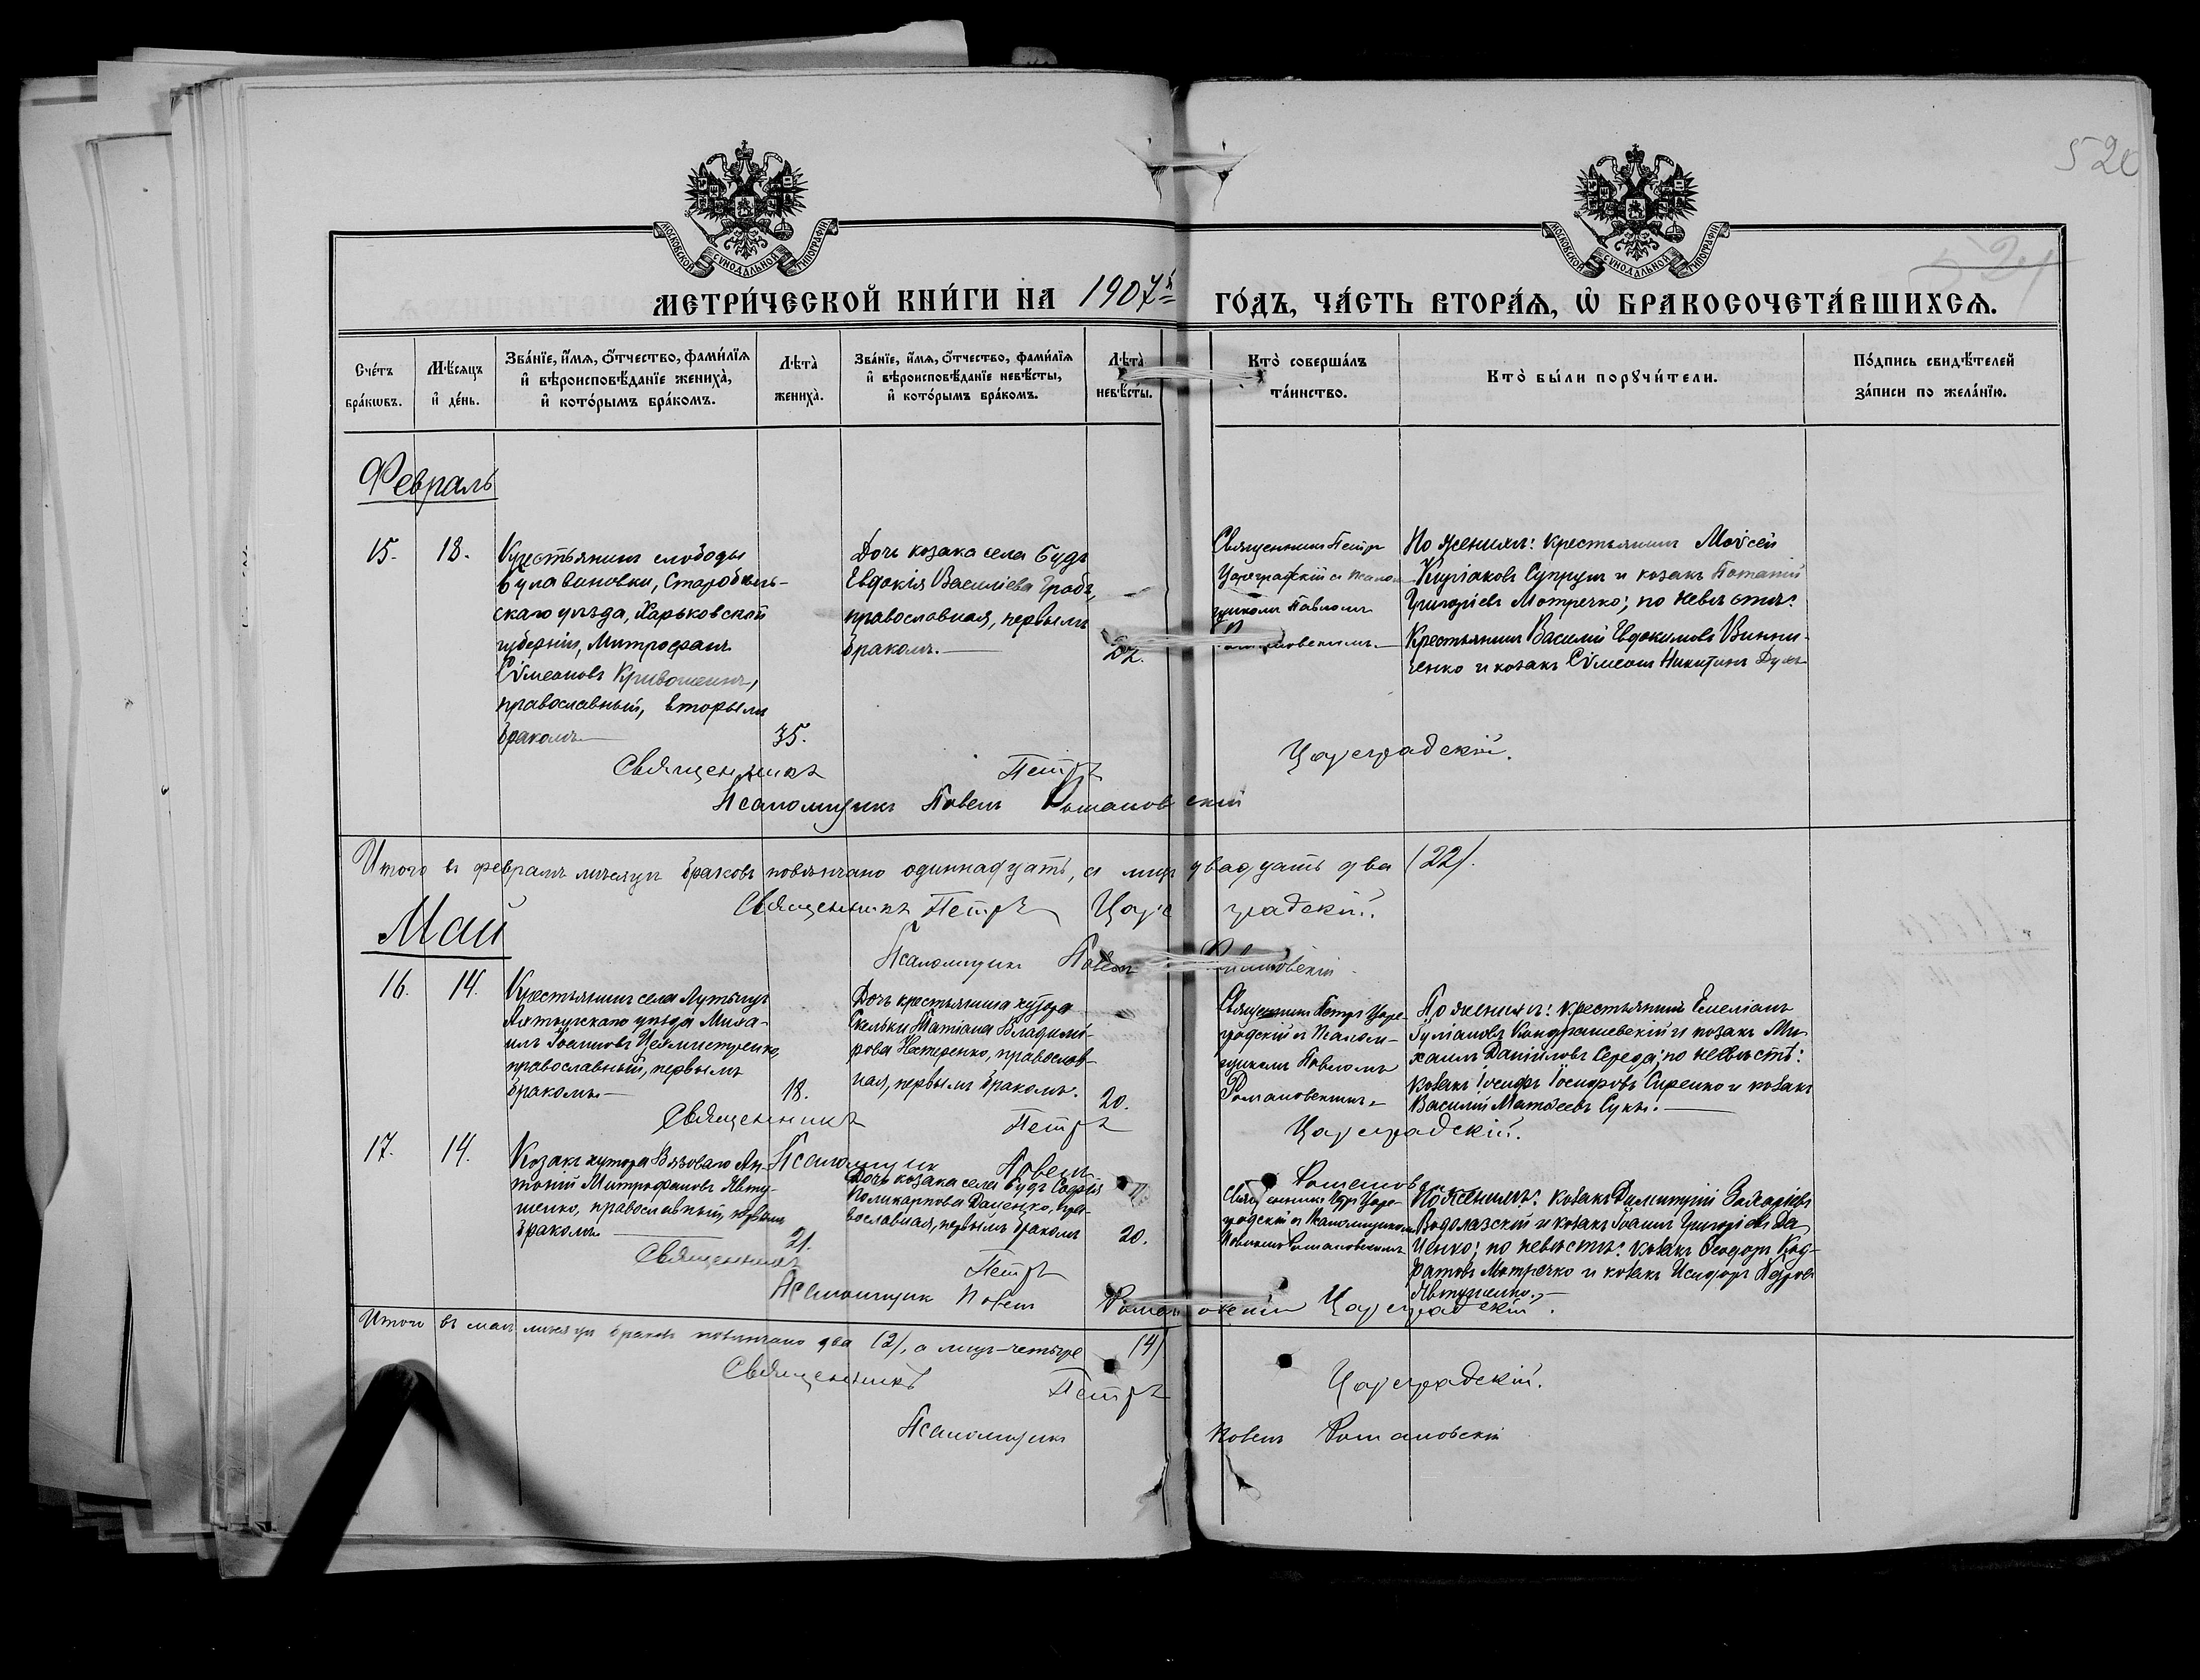 520
МОСКОВСКОЙ СѴНОДАЛЬНОЙ ТИПОГРАФІИ
МОСКОВСКОЙ СѴНОДАЛЬНОЙ ТИПОГРАФІИ
МЕТРИ́ЧЕСКОЙ КНИ́ГИ НА 1907й ГО́ДЪ, ЧА́СТЬ ВТОРА́Ѧ, Ѡ БРАКОСОЧЕТА́ВШИХСѦ.
Сче́тъ бра́кѡвъ.
Мѣ́сяцъ и де́нь.
Зва́нїе, и́мѧ, ѻ́тчество, фами́лїѧ
и҆ вѣроисповѣ́данїе жениха̀,
и҆ кото́рымъ бра́комъ.
Лѣта̀ жениха̀.
Зва́нїе, и́мѧ, ѻ́тчество, фами́лїѧ
и҆ вѣроисповѣ́данїе невѣ́сты,
и҆ кото́рымъ бра́комъ.
Лѣта̀ невѣ́сты.
Кто̀ соверша́лъ
та́инство.
Кто̀ бы́ли порꙋчи́тели.
По́дпись свидѣ́телей
за́писи по жела́нїю.
Февраль
15.
18.
Крестьянинъ слободы
Булавиновки, Старобѣль-
скаго уѣзда, Харьковской
губерніи, Митрофанъ
Сѵмеоновъ
православный, вторымъ
бракомъ
35.
Дочь козака села Будъ
Евдокія Василіева
православная, первымъ
бракомъ.
Священникъ Петръ
Цареградскій съ псалом-
щикомъ Павломъ
По женихѣ: крестьянинъ Моѵсей
Супрунъ и козакъ Потапій
Григоріевъ Мотречко; по невѣстѣ:
Крестьянинъ Василій Евдокимовъ Винни-
ченко и козакъ Сѵмеонъ Никитинъ
Священникъ Петръ Цареградскій.
Псаломщикъ Павелъ Романовскій
Итого въ февралѣ мѣсяцѣ браковъ повѣнчано одиннадцать, а лицъ двадцать два (22).
Священникъ Петръ Цареградскій.
Май
Псаломщикъ Павелъ Романовскій
16.
14.
Крестьянинъ села
уѣзда Миха-
илъ Іоанновъ
православный, первымъ
бракомъ.
18.
Дочь крестьянина хутора
Скельки Татіана Владимі-
рова Нестеренко, православ-
ная, первымъ бракомъ.
20.
Священникъ Петръ Царе-
градскій съ псалом-
щикомъ Павломъ
Романовскимъ
По женихѣ: крестьянинъ Емеліанъ
Кондрашевскій и козакъ Ми-
хаилъ Даніиловъ Середа; по невѣстѣ:
козакъ Іосифъ Іосифовъ Сиренко и козакъ
Василій Матѳеевъ
Священникъ Петръ Цареградскій.
Псаломщикъ Павелъ Романовскій
17.
14.
Козакъ хутора Вязоваго Ан-
тоній Митрофановъ Явту-
шенко, православный, первымъ
бракомъ
21.
Дочь козака села Будъ Софія
Поликарпова Даценко, пра-
вославная, первымъ бракомъ
20.
Священникъ Петръ Царе-
градскій съ псаломщикомъ
Павломъ Романовскимъ
По женихѣ: козакъ Димитрій Захаріевъ
Водолазскій и козакъ Іоаннъ Григоріевъ Да
ценко; по невѣстѣ: козакъ Ѳеодоръ Код-
ратовъ Мотречко и козакъ Исидоръ Петровъ
Явтушенко.
Священникъ Петръ Цареградскій.
Псаломщикъ Павелъ Романовскій
Итого въ маѣ мѣсяцѣ браковъ повѣнчано два (2), а лицъ-четыре (4)
Священникъ Петръ Цареградскій.
Псаломщикъ Павелъ Романовскій